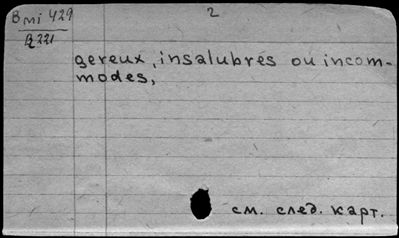 2
Bmi 429
R 221
gereux, insalubres ou incom-
modes,
см. след. карт.